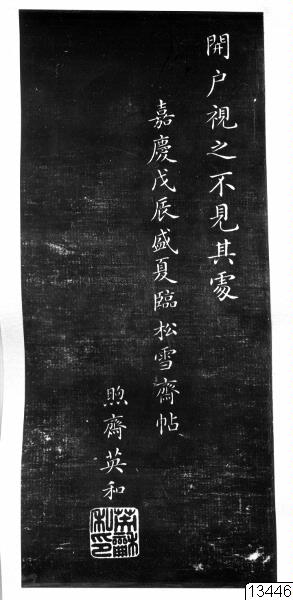 開户視之不見其處
嘉慶戊辰盛夏臨松雪齋帖
煦齋英和
英龢私印
13446